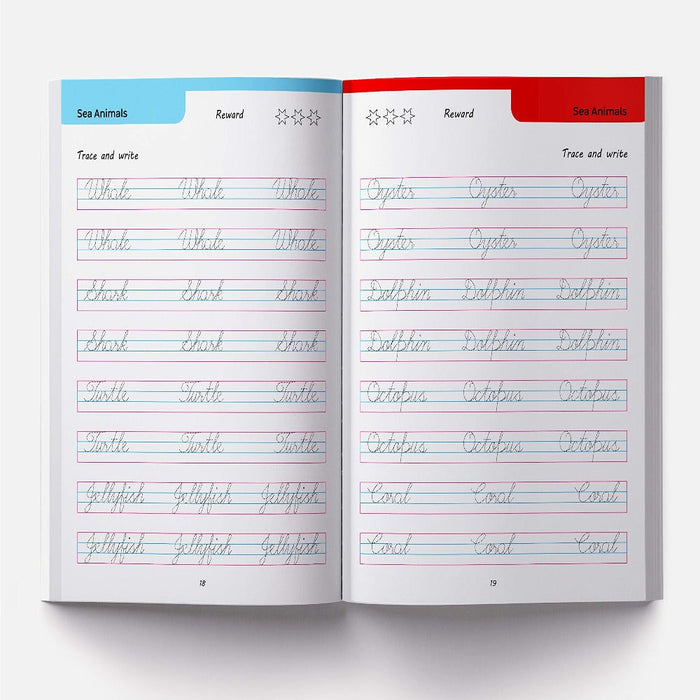 Sea Animals Reward
Trace and write
Whale Whale Whale
Whale Whale Whale
Shark Shark Shark
Shark Shark Shark
Turtle Turtle Turtle
Turtle Turtle Turtle
Jellyfish Jellyfish Jellyfish
Jellyfish Jellyfish Jellyfish
18
Reward Sea Animals
Trace and write
Oyster Oyster Oyster
Oyster Oyster Oyster
Dolphin Dolphin Dolphin
Dolphin Dolphin Dolphin
Octopus Octopus Octopus
Octopus Octopus Octopus
Coral Coral Coral
Coral Coral Coral
19